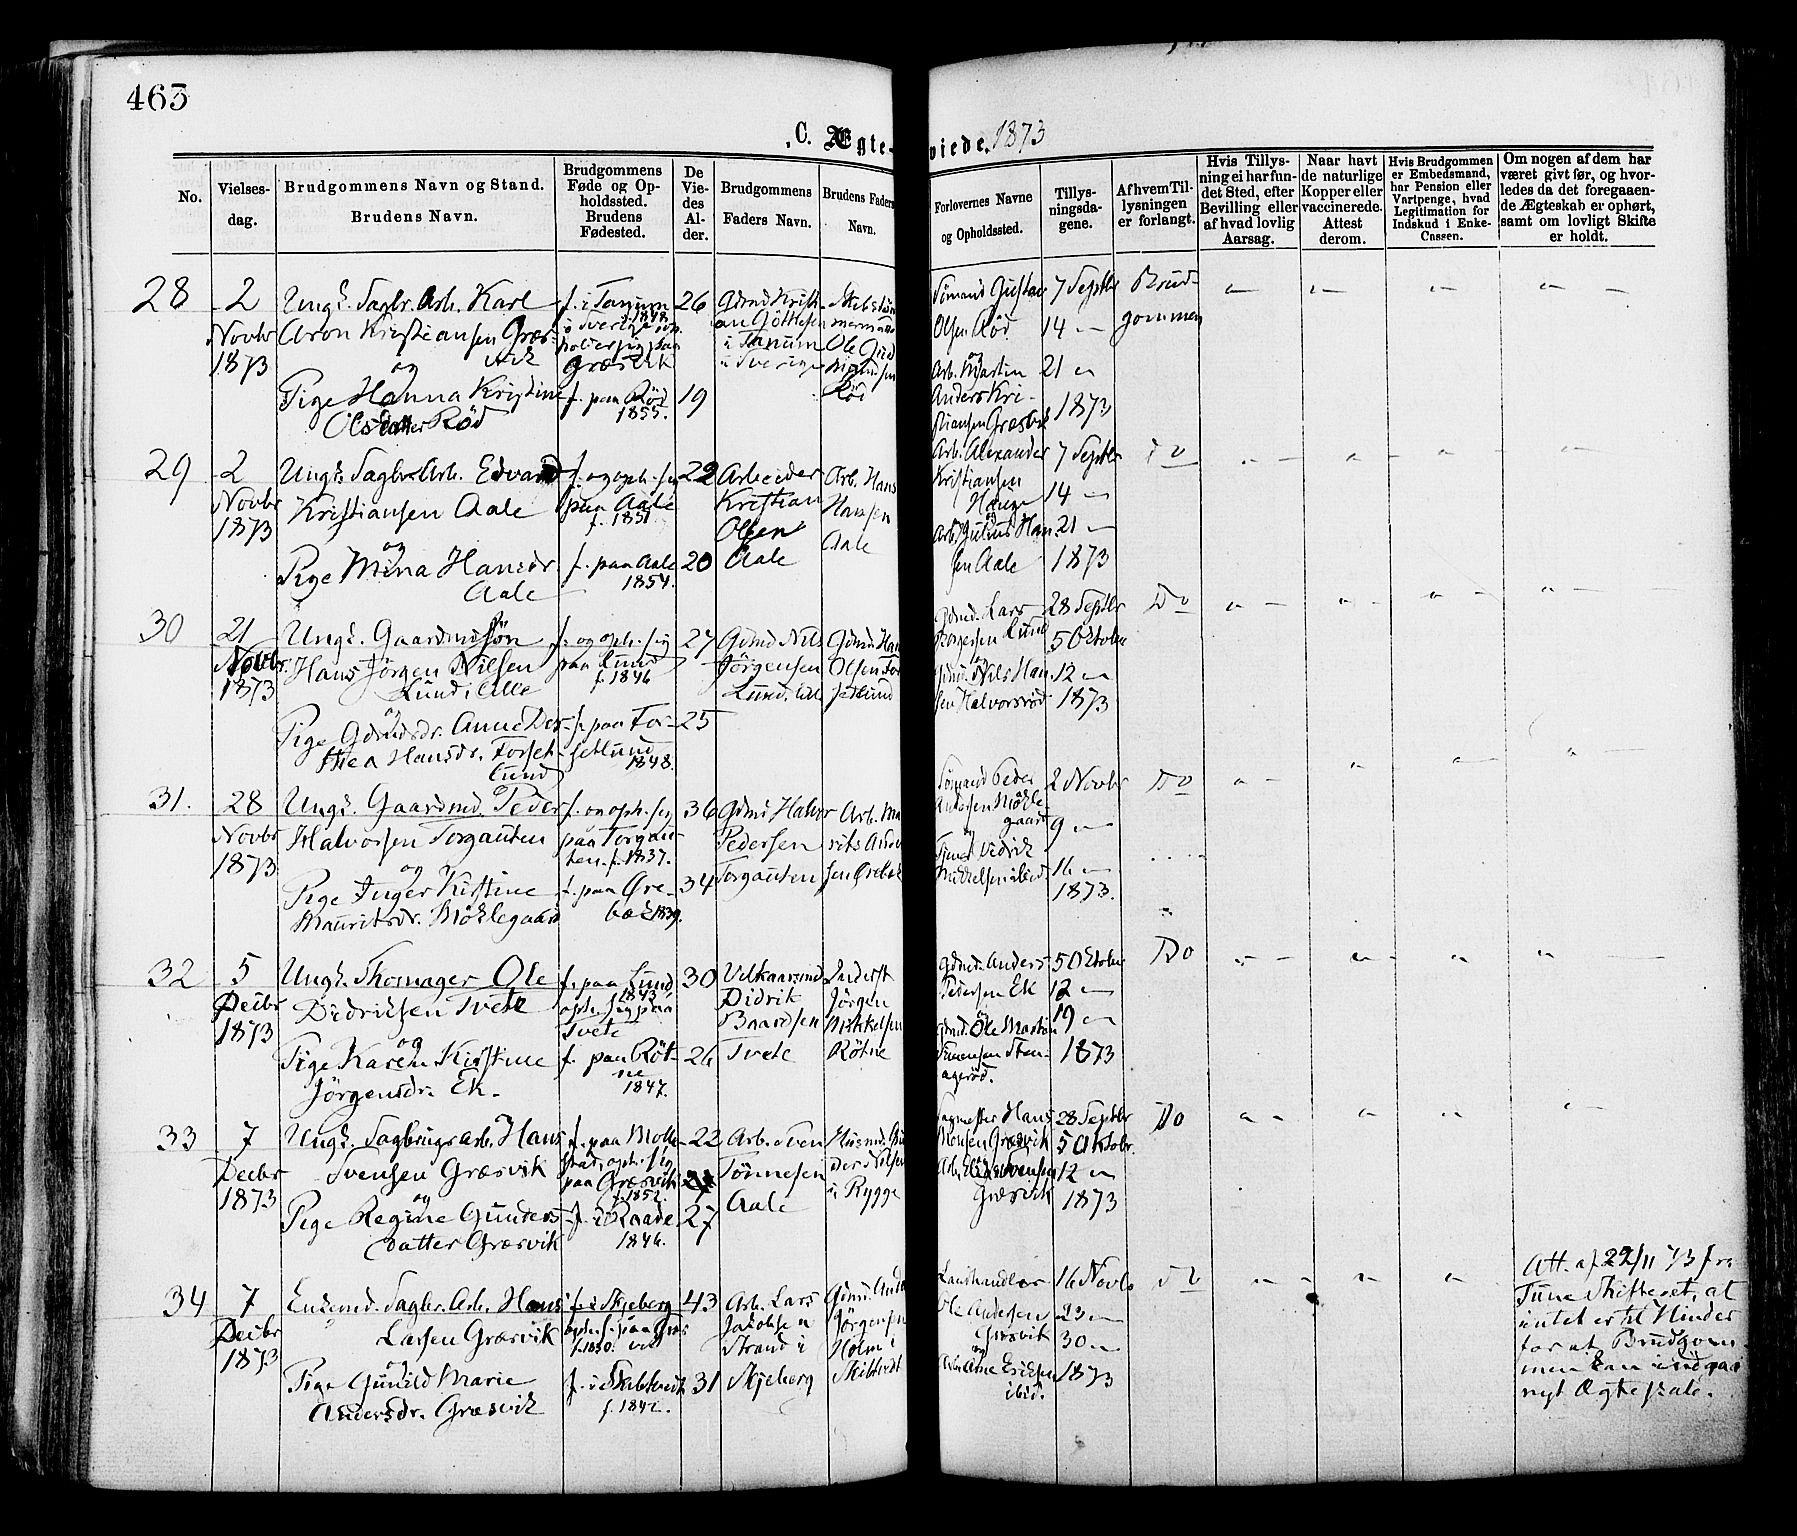 463
C. Ægte-viede. 1873
No.
Vielses-
dag.
Brudgommens Navn og Stand.
Brudens Navn.
Brudgommens
Føde og Op-
holdssted.
Brudens
Fødested.
De
Vie-
des
Al-
der.
Brudgommens
Faders Navn.
Brudens Faders
Navn.
Forlovernes Navne
og Opholdssted.
Tillys-
ningsda-
gene.
Af hvem Til-
lysningen
er forlangt.
Hvis Tillys-
ning ei har fun-
det Sted, efter
Bevilling eller
af hvad lovlig
Aarsag.
Naar havt
de naturlige
Kopper eller
vaccinerede.
Attest
derom.
Hvis Brudgommen
er Embedsmand,
har Pension eller
Vartpenge, hvad
Legitimation for
Indskud i Enke-
Cassen.
Om nogen af dem har
været givt før, og hvor-
ledes da det foregaaen-
de Ægteskab er ophørt,
samt om lovligt Skifte
er holdt.
28
2
Novbr
1873
Ungk. Sagbr. Arb. Karl
Aron Kristiansen Græs-
vik
og
Pige Hanna Kristine
Olsdatter Rød
f. i Tanum
1848
i Sverige
Græsvik
f. paa Rød
1855.
26
19
Gdmd Krist-
an
i Tanum
i Sverige
Ole
Rød
Sömand Gustav
Olsen Rød
og
Arb. Martin
Anders Kri-
stiansen Græsvik
7 Septbr
14 —
21 —
1873
Brud-
gommen
29
2
Novbr
1873
Ungk. Sagbr. Arb. Edvard
Kristiansen Aale
og
Pige Mina Hansdr.
Aale
f. og oph. sig
paa Aale
f. 1851
f. paa Aale
1854.
22
20
Arbeider
Kristian
Olsen
Aale
Arb. Hans
Hansen
Aale
Arb. Alexander
Kristiansen
Hauge
og
Arb. Julius Han-
sen Aale
7 Septbr
14 —
21 —
1873
Do
30
21
Novbr
1873
Ungk. Gaardmdsön
Hans Jörgen Nilsen
Lund, lille
og
Pige Gdmdsdr. Anne Dor-
thea Hansdr. Torset-
lund
f. og oph. sig
paa Lund
f. 1846
f. paa Tor-
setlund
1848.
27
25
Gdmd Nils
Jörgensen
Lund, lill
Gdmd. Han
Olsen Tor
setlund
Gdmd. Lars
Borgersen Lund
og
Gdmd. Nils Han-
sen Halvorsrød
28 Septbr
5 Octobr
12 —
1873
Do
31.
28
Novbr
1873
Ungk. Gaardmd. Peder
Halvorsen Torgauten
og
Pige Inger Kistine
Mauritsdr. Möklegaard
f. og oph. sig
paa Torgau-
ten. f. 1837.
f. paa Øre-
bæk 1839.
36
34
Gdmd Halvor
Pedersen
Torgauten
Arb. Ma
rits Ande
sen Ørebek
Sömand Peder
Andersen Mökle-
gaard
og
2 Novbr
9 —
16 —
1873.
Do
32
5
Decbr
1873
Ungk. Skomager Ole
Didriksen Tvete
og
Pige Karen Kirstine
Jörgensdr. Ek.
f. paa Lund
1843
oph. sig paa
Tvete
f. paa Röt-
ne
1847.
30
26
Didrik
Baardsen
Tvete
Inderst
Jörgen
Mikkelsen
Rötne
Gdmd. Anders
Pedersen Ek
og
Gdmd. Ole Martin
5 Octobr
12 —
19 —
1873
Do
33
7
Decbr
1873
Ungk. Sagbrugsarb. Hans
Svensen Græsvik
og
Pige Regine Gunders-
datter Græsvik
f. paa
oph. sig
paa Græsvik
f. 1852.
f. i Raade
1846.
22
27
Arb. Sven
Tönnesen
Aale
Husmd. Gu
der Nilsen
i Rygge
Sagmester Hans
Monsen Græsvik
og
Græsvik
28 Septbr
5 Oktobr.
12 —
1873
Do
34
7
Decbr
1873
Enkemd. Sagbr. Arb. Hans
Larsen Græsvik
og
Pige Gunild Marie
Andersdr. Græsvik
f. i Skjeberg
oph. s. paa Græs
vik
f. 1830.
f. i Skibtvedt
f. 1842.
43
31
Arb. Lars
Jakobsen
Strand i
Skjeberg
Gdmd. Ande
Jörgensen
Holm i
Skibtvedt
Landhandler
Ole Andersen
Græsvik
og
ibid.
16 Novbr
23 —
30 —
1873
Do
Att. af 22/11 73 fra
Tune Skifteret, at
intet er til Hinder
for at Brudgom-
men kan indgaa
nyt Ægteskab.